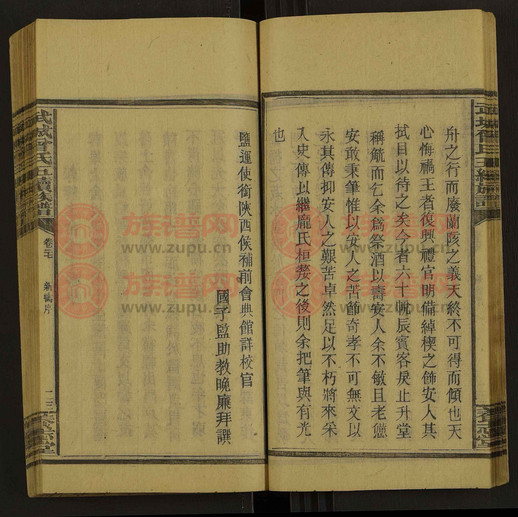 舟之行而廢蘭陔之義天終不可得而傾也天
心悔禍王者復興禮官明備綽楔之飾安人其
拭目以待之矣今者六十帨辰賓客戾止升堂
稱觥而乞余為祭酒以壽安人余不敏且老憊
安敢秉筆惟以安人之苦節奇孝不可無文以
永其傳抑安人之艱苦卓然足以不朽將來采
入史傳以繼龐氏桓嫠之後則余把筆與有光
也
鹽運使銜陝西候補前會典館詳校官
國子監助教晚廉拜譔
武城曾氏五續族譜
卷
二三
族谱网
www.zupu.cn
族谱网
www.zupu.cn
族谱网
www.zupu.cn
族谱网
www.zupu.cn